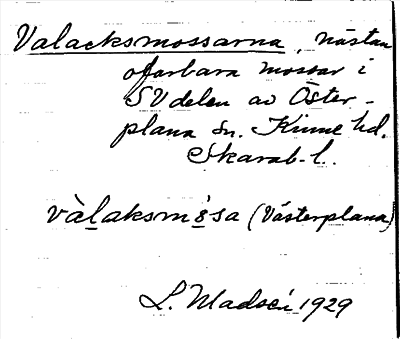 Valacksmossarna, nästan
ofarbara mossar i
SV delen av Öster-
plana sn. Kinne hd.
Skarab. l.
vàlaksmósa (Västerplana)
L. Madsén 1929